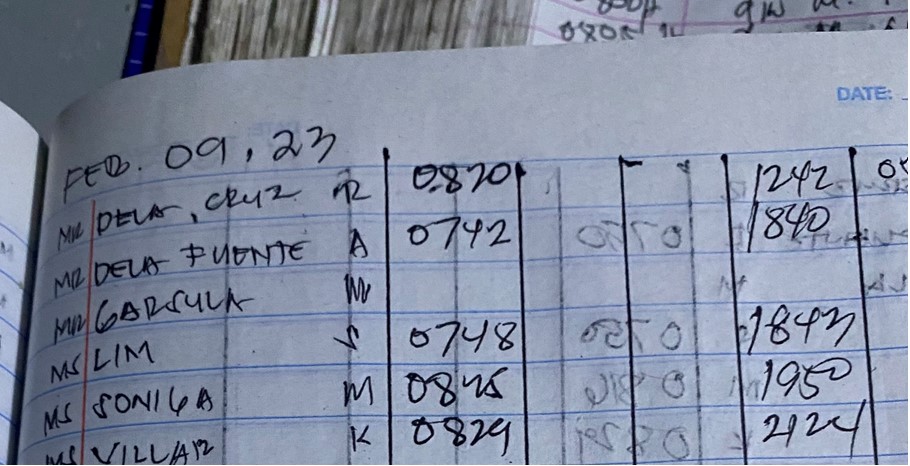 DATE:
FEB. 09, 23
MR DELA, CRUZ R 0820 1242
MR DELA FUENTE A 0742 1840
MR GARSULA M
MS LIM S 0748 1843
MS SONIGA M 0845 1950
MS VILLAR K 0829 2124